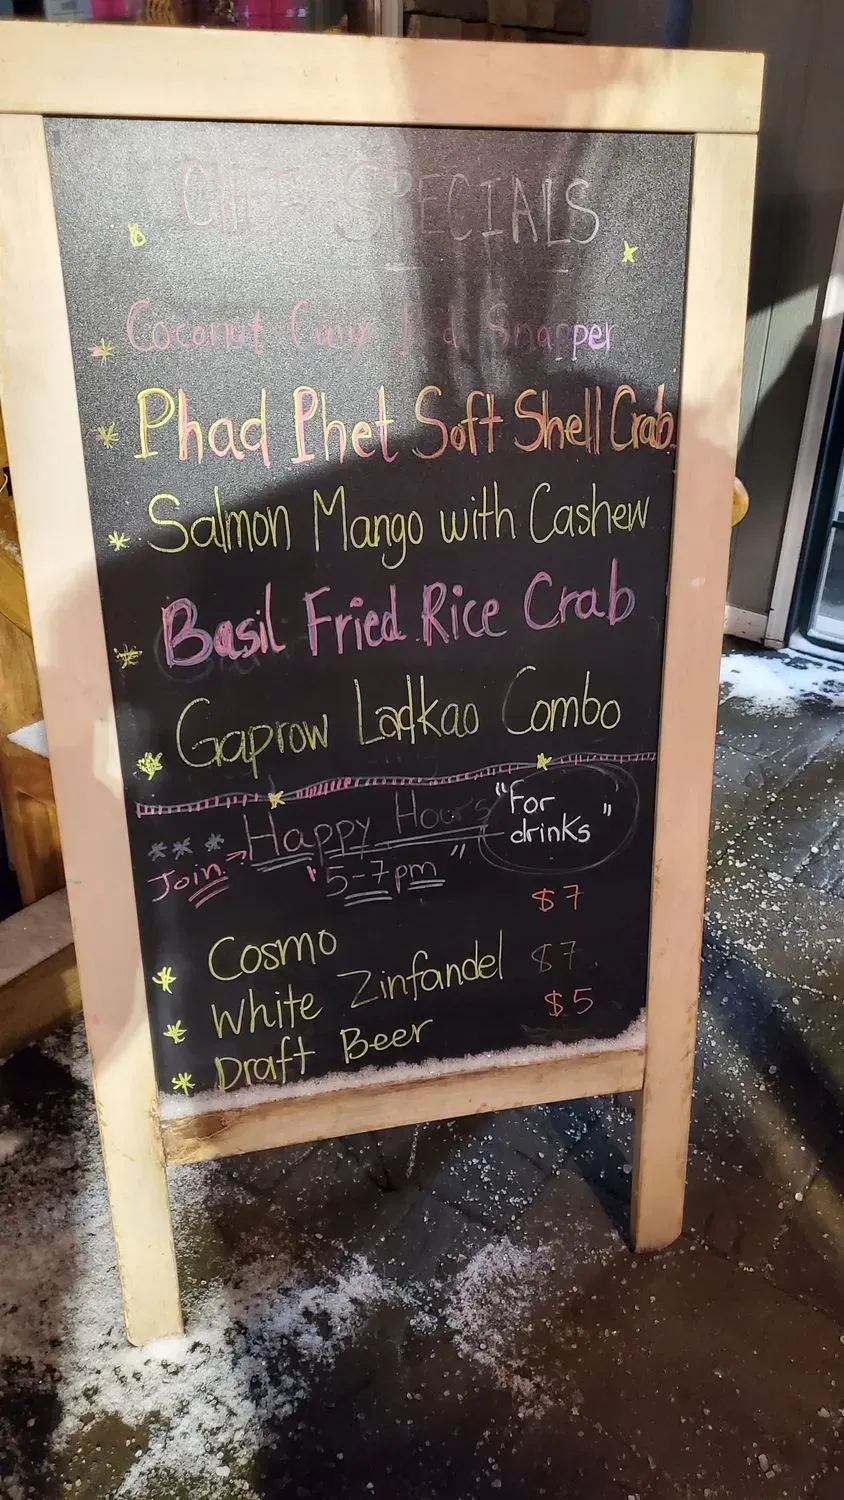 CHEF SPECIALS
* Coconut Curry Red Snapper
* Phad Phet Soft Shell Crab
* Salmon Mango with Cashew
* Basil Fried Rice Crab
* Gaprow Ladkao Combo
*** Happy Hours "For drinks"
Join → "5-7pm"
* Cosmo $7
* White Zinfandel $7
* Draft Beer $5